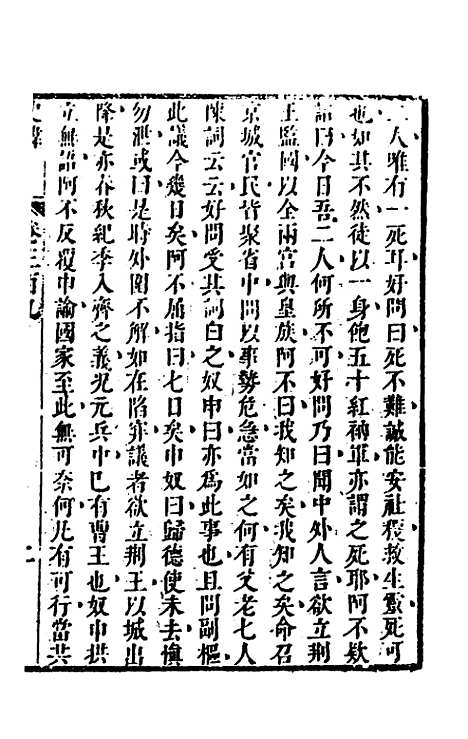 二人唯有一死耳好問曰死不難誠能安社稷救生靈死可
也如其不然徒以一身飽五十紅衲軍亦謂之死耶阿不欵
語曰今日吾二人何所不可好問乃曰聞中外人言欲立荆
王監國以全兩宮與皇族阿不曰我知之矣我知之矣命召
京城官民皆聚省中問以事勢危急當如之何有父老七人
陳詞云云好問受其詞白之奴申曰亦爲此事也且問副樞
此議今幾日矣阿不屈指曰七日矣申奴曰歸德使未去愼
勿泄或曰是時外圍不解如在陷穽議者欲立荆王以城出
降是亦春秋紀季入齊之義况元兵中巳有曹王也奴申拱
立無語阿不反覆申論國家至此無可奈何凡有可行當共
史緯 卷二百九 二